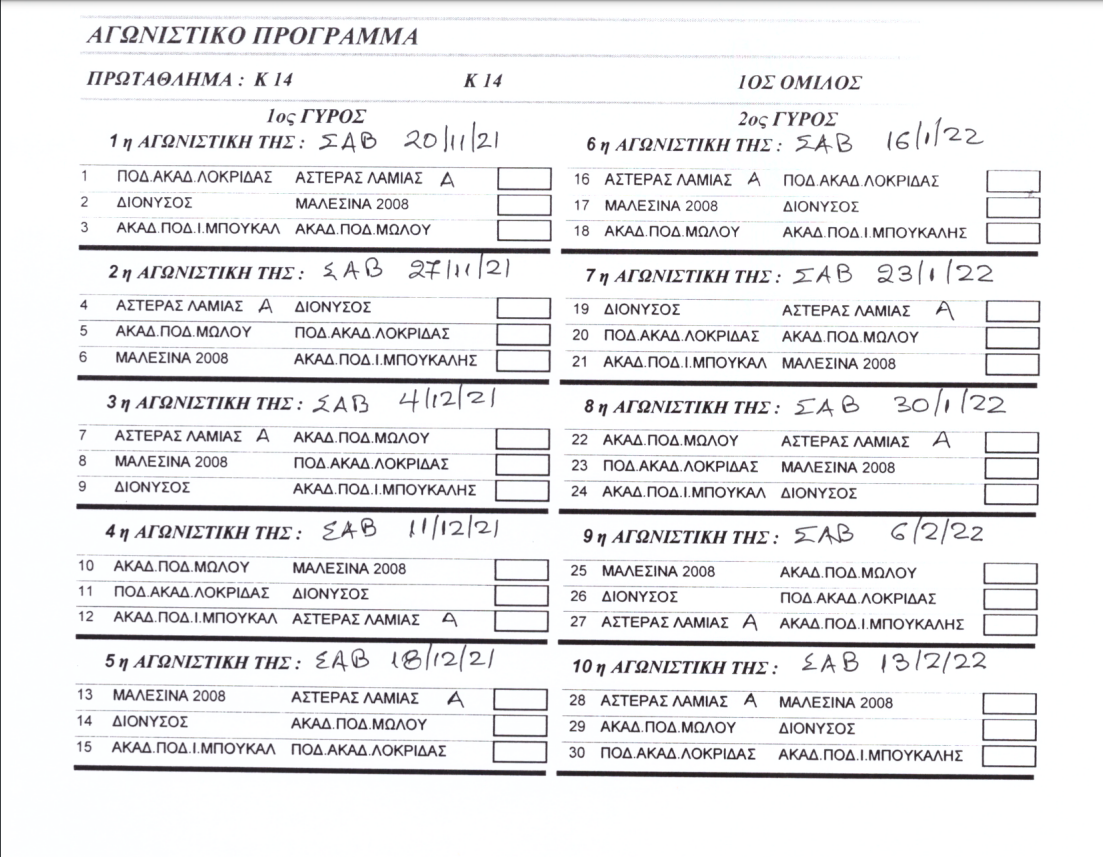 ΑΓΩΝΙΣΤΙΚΟ ΠΡΟΓΡΑΜΜΑ
ΠΡΩΤΑΘΛΗΜΑ : Κ 14 Κ 14 1ΟΣ ΟΜΙΛΟΣ
1ος ΓΥΡΟΣ
1 η ΑΓΩΝΙΣΤΙΚΗ ΤΗΣ : ΣΑΒ 20/11/21
1 ΠΟΔ.ΑΚΑΔ.ΛΟΚΡΙΔΑΣ ΑΣΤΕΡΑΣ ΛΑΜΙΑΣ Α
2 ΔΙΟΝΥΣΟΣ ΜΑΛΕΣΙΝΑ 2008
3 ΑΚΑΔ.ΠΟΔ.Ι.ΜΠΟΥΚΑΛ ΑΚΑΔ.ΠΟΔ.ΜΩΛΟΥ
2 η ΑΓΩΝΙΣΤΙΚΗ ΤΗΣ : ΣΑΒ 27/11/21
4 ΑΣΤΕΡΑΣ ΛΑΜΙΑΣ Α ΔΙΟΝΥΣΟΣ
5 ΑΚΑΔ.ΠΟΔ.ΜΩΛΟΥ ΠΟΔ.ΑΚΑΔ.ΛΟΚΡΙΔΑΣ
6 ΜΑΛΕΣΙΝΑ 2008 ΑΚΑΔ.ΠΟΔ.Ι.ΜΠΟΥΚΑΛΗΣ
3 η ΑΓΩΝΙΣΤΙΚΗ ΤΗΣ : ΣΑΒ 4/12/21
7 ΑΣΤΕΡΑΣ ΛΑΜΙΑΣ Α ΑΚΑΔ.ΠΟΔ.ΜΩΛΟΥ
8 ΜΑΛΕΣΙΝΑ 2008 ΠΟΔ.ΑΚΑΔ.ΛΟΚΡΙΔΑΣ
9 ΔΙΟΝΥΣΟΣ ΑΚΑΔ.ΠΟΔ.Ι.ΜΠΟΥΚΑΛΗΣ
4 η ΑΓΩΝΙΣΤΙΚΗ ΤΗΣ : ΣΑΒ 11/12/21
10 ΑΚΑΔ.ΠΟΔ.ΜΩΛΟΥ ΜΑΛΕΣΙΝΑ 2008
11 ΠΟΔ.ΑΚΑΔ.ΛΟΚΡΙΔΑΣ ΔΙΟΝΥΣΟΣ
12 ΑΚΑΔ.ΠΟΔ.Ι.ΜΠΟΥΚΑΛ ΑΣΤΕΡΑΣ ΛΑΜΙΑΣ Α
5 η ΑΓΩΝΙΣΤΙΚΗ ΤΗΣ : ΣΑΒ 18/12/21
13 ΜΑΛΕΣΙΝΑ 2008 ΑΣΤΕΡΑΣ ΛΑΜΙΑΣ Α
14 ΔΙΟΝΥΣΟΣ ΑΚΑΔ.ΠΟΔ.ΜΩΛΟΥ
15 ΑΚΑΔ.ΠΟΔ.Ι.ΜΠΟΥΚΑΛ ΠΟΔ.ΑΚΑΔ.ΛΟΚΡΙΔΑΣ
2ος ΓΥΡΟΣ
6 η ΑΓΩΝΙΣΤΙΚΗ ΤΗΣ : ΣΑΒ 16/1/22
16 ΑΣΤΕΡΑΣ ΛΑΜΙΑΣ Α ΠΟΔ.ΑΚΑΔ.ΛΟΚΡΙΔΑΣ
17 ΜΑΛΕΣΙΝΑ 2008 ΔΙΟΝΥΣΟΣ
18 ΑΚΑΔ.ΠΟΔ.ΜΩΛΟΥ ΑΚΑΔ.ΠΟΔ.Ι.ΜΠΟΥΚΑΛΗΣ
7 η ΑΓΩΝΙΣΤΙΚΗ ΤΗΣ : ΣΑΒ 23/1/22
19 ΔΙΟΝΥΣΟΣ ΑΣΤΕΡΑΣ ΛΑΜΙΑΣ Α
20 ΠΟΔ.ΑΚΑΔ.ΛΟΚΡΙΔΑΣ ΑΚΑΔ.ΠΟΔ.ΜΩΛΟΥ
21 ΑΚΑΔ.ΠΟΔ.Ι.ΜΠΟΥΚΑΛ ΜΑΛΕΣΙΝΑ 2008
8 η ΑΓΩΝΙΣΤΙΚΗ ΤΗΣ : ΣΑΒ 30/1/22
22 ΑΚΑΔ.ΠΟΔ.ΜΩΛΟΥ ΑΣΤΕΡΑΣ ΛΑΜΙΑΣ Α
23 ΠΟΔ.ΑΚΑΔ.ΛΟΚΡΙΔΑΣ ΜΑΛΕΣΙΝΑ 2008
24 ΑΚΑΔ.ΠΟΔ.Ι.ΜΠΟΥΚΑΛ ΔΙΟΝΥΣΟΣ
9 η ΑΓΩΝΙΣΤΙΚΗ ΤΗΣ : ΣΑΒ 6/2/22
25 ΜΑΛΕΣΙΝΑ 2008 ΑΚΑΔ.ΠΟΔ.ΜΩΛΟΥ
26 ΔΙΟΝΥΣΟΣ ΠΟΔ.ΑΚΑΔ.ΛΟΚΡΙΔΑΣ
27 ΑΣΤΕΡΑΣ ΛΑΜΙΑΣ Α ΑΚΑΔ.ΠΟΔ.Ι.ΜΠΟΥΚΑΛΗΣ
10 η ΑΓΩΝΙΣΤΙΚΗ ΤΗΣ : ΣΑΒ 13/2/22
28 ΑΣΤΕΡΑΣ ΛΑΜΙΑΣ Α ΜΑΛΕΣΙΝΑ 2008
29 ΑΚΑΔ.ΠΟΔ.ΜΩΛΟΥ ΔΙΟΝΥΣΟΣ
30 ΠΟΔ.ΑΚΑΔ.ΛΟΚΡΙΔΑΣ ΑΚΑΔ.ΠΟΔ.Ι.ΜΠΟΥΚΑΛΗΣ